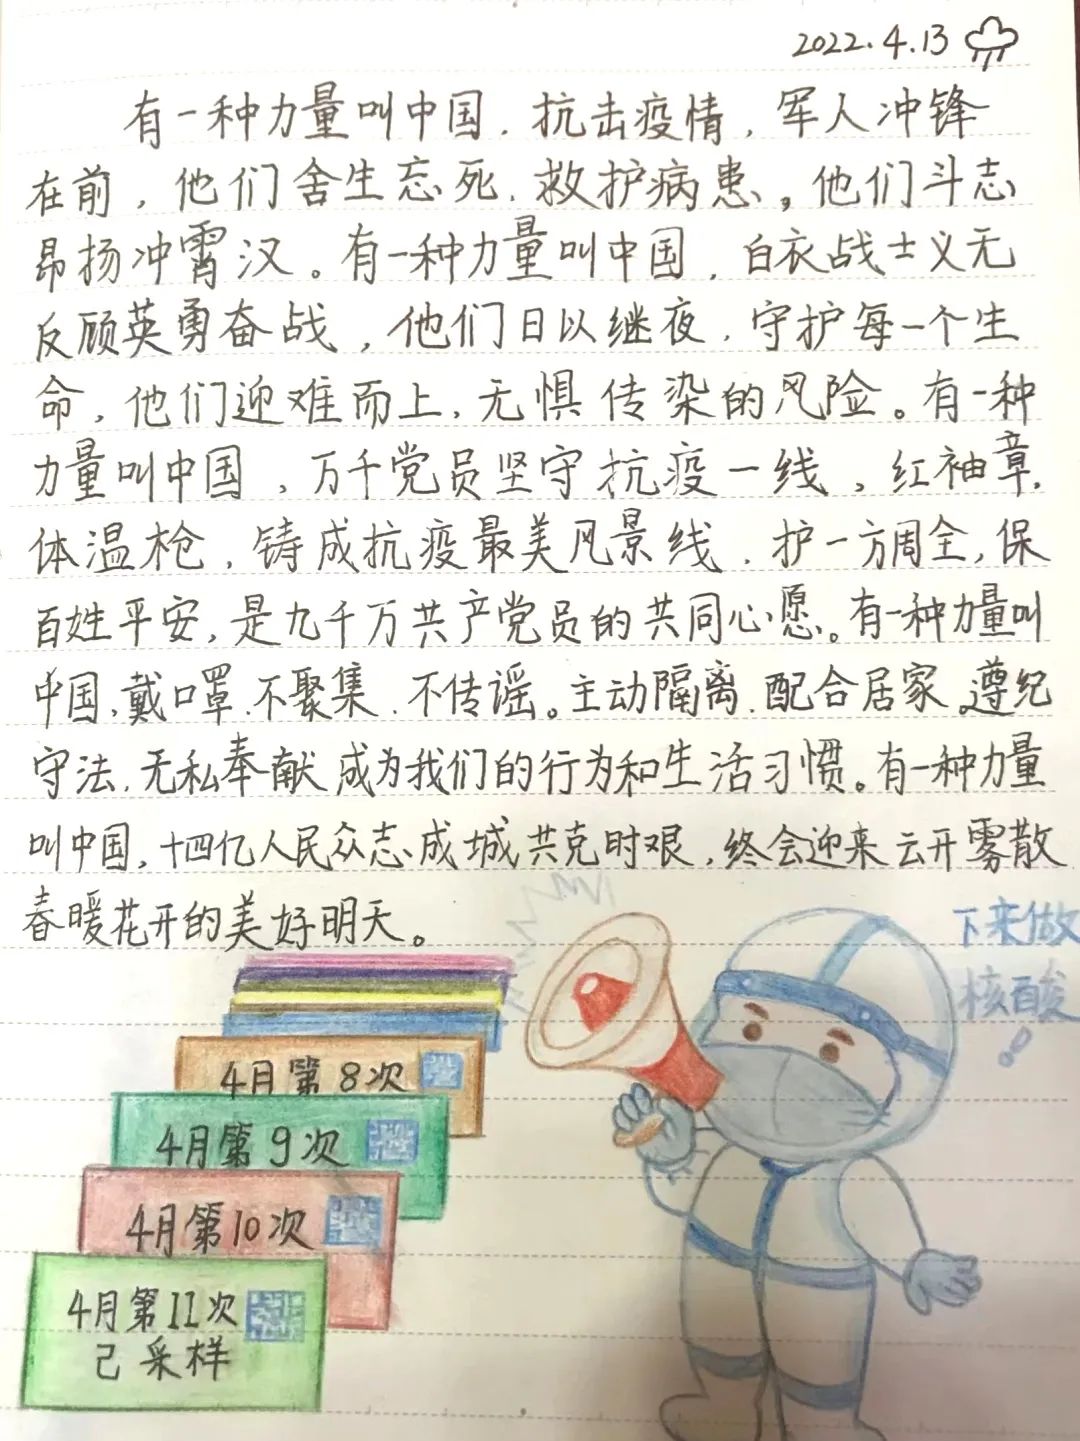 2022.4.13
有一种力量叫中国,抗击疫情,军人冲锋
在前,他们舍生忘死,救护病患。他们斗志
昂扬冲霄汉。有一种力量叫中国,白衣战士义无
反顾英勇奋战,他们日以继夜,守护每一个生
命,他们迎难而上,无惧传染的风险。有一种
力量叫中国,万千党员坚守抗疫一线,红袖章,
体温枪,铸成抗疫最美风景线,护一方周全,保
百姓平安,是九千万共产党员的共同心愿。有一种力量叫
中国,戴口罩,不聚集,不传谣。主动隔离,配合居家,遵纪
守法,无私奉献成为我们的行为和生活习惯。有一种力量
叫中国,十四亿人民众志成城共克时艰,终会迎来云开雾散
春暖花开的美好明天。
下来做
核酸!
4月第8次
4月第9次
4月第10次
4月第11次
已采样